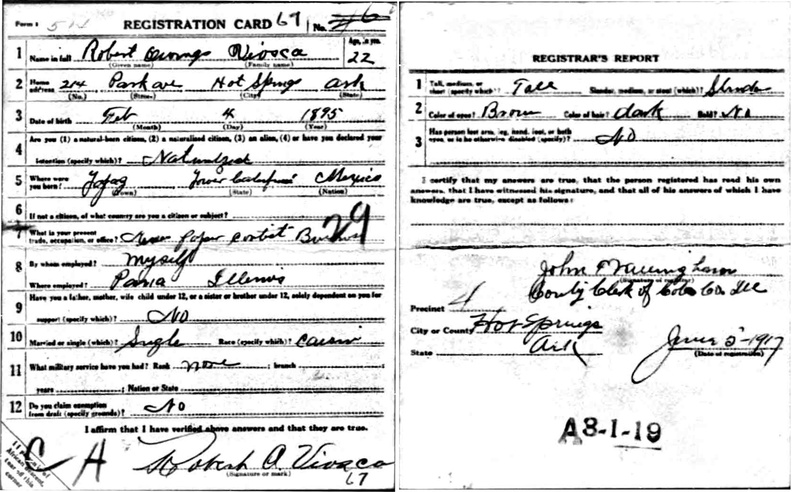 Form 1 REGISTRATION CARD 67 No.
1 Name in full Robert Vivosca Age, in yrs. 22
(Given name) (Family name)
2 Home address 214 Park ave Hot Springs ark
(No.) (Street) (City) (State)
3 Date of birth Feb 4 1895
(Month) (Day) (Year)
4 Are you (1) a natural-born citizen, (2) a naturalized citizen, (3) an alien, (4) or have you declared your
intention (specify which)? Naturalized
5 Where were you born? Mexico
(Town) (State) (Nation)
6 If not a citizen, of what country are you a citizen or subject?
7 What is your present trade, occupation, or office? News paper 29
8 By whom employed? Myself
Where employed? Pana Illinois
9 Have you a father, mother, wife, child under 12, or a sister or brother under 12, solely dependent on you for
support (specify which)? No
10 Married or single (which)? Single Race (specify which)?
11 What military service have you had? Rank none ; branch
years ; Nation or State
12 Do you claim exemption from draft (specify grounds)? No
I affirm that I have verified above answers and that they are true.
Robert A. Vivosca
(Signature or mark)
67
REGISTRAR'S REPORT
1 Tall, medium, or short (specify which)? Tall Slender, medium, or stout (which)? Slender
2 Color of eyes? Brown Color of hair? dark Bald? No
3 Has person lost arm, leg, hand, foot, or both
eyes, or is he otherwise disabled (specify)? No
I certify that my answers are true, that the person registered has read his own
answers, that I have witnessed his signature, and that all of his answers of which I have
knowledge are true, except as follows:
John
(Signature of registrar)
County Clerk of Coles Co. Ill
Precinct 4
City or County Hot Springs
State Ark
June 5-1917
(Date of registration)
A8-1-19